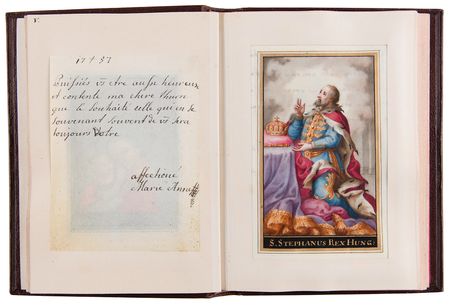 V.
17+37
Puissiés vs etre ausse heureux
et contente ma chere Thuron
que le souhaite celle qui en se
souvenant souvent de vs sera
toujours Votre
affectioné
Marie Anne
S. STEPHANUS REX HUNG: